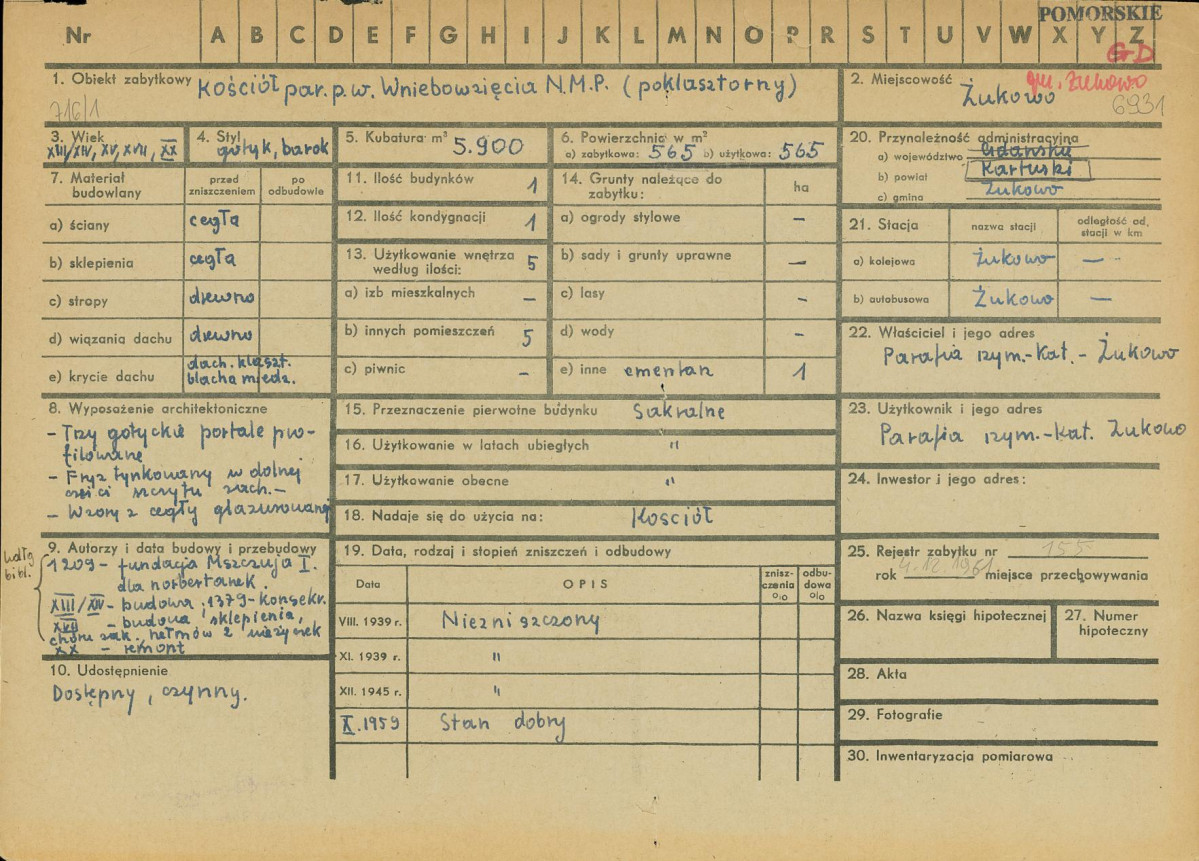 POMORSKIE
Nr A B C D E F G H I J K L M N O P R S T U V W X Y Z
GD
1. Obiekt zabytkowy Kościół par. p.w. Wniebowzięcia N.M.P. (poklasztorny)
716/1
2. Miejscowość gm. Żukowo
Żukowo 6931
3. Wiek
XIII/XIV, XV, XVII, XX
4. Styl
gotyk, barok
5. Kubatura m³ 5.900
6. Powierzchnia w m²
a) zabytkowa: 565 b) użytkowa: 565
20. Przynależność administracyjna
a) województwo Gdańskie
b) powiat Kartuski
c) gmina Żukowo
7. Materiał budowlany
przed zniszczeniem
po odbudowie
a) ściany cegła
b) sklepienia cegła
c) stropy drewno
d) wiązania dachu drewno
e) krycie dachu dach. klaszt.
blacha miedz.
11. Ilość budynków 1
12. Ilość kondygnacji 1
13. Użytkowanie wnętrza
według ilości: 5
a) izb mieszkalnych –
b) innych pomieszczeń 5
c) piwnic –
14. Grunty należące do
zabytku: ha
a) ogrody stylowe –
b) sady i grunty uprawne –
c) lasy –
d) wody –
e) inne cmentarz 1
21. Stacja
nazwa stacji
odległość od.
stacji w km
a) kolejowa Żukowo —
b) autobusowa Żukowo —
22. Właściciel i jego adres
Parafia rzym.-Kat. - Żukowo
8. Wyposażenie architektoniczne
- Trzy gotyckie portale pro-
filowane
- Fryz tynkowany w dolnej
części szczytu zach. -
- Wzory z cegły glazurowanej
15. Przeznaczenie pierwotne budynku Sakralne
16. Użytkowanie w latach ubiegłych "
17. Użytkowanie obecne "
18. Nadaje się do użycia na: Kościół
23. Użytkownik i jego adres
Parafia rzym.-Kat. Żukowo
24. Inwestor i jego adres:
9. Autorzy i data budowy i przebudowy
wdłg
bibl.
1209 - fundacja Mszczuja I.
dla norbertanek.
XIII/XIV - budowa, 1379 - konsekr.
XVII - budowa sklepienia,
chóru zak. hełmów z wieżyczek
XX - remont
10. Udostępnienie
Dostępny, czynny.
19. Data, rodzaj i stopień zniszczeń i odbudowy
Data
OPIS
znisz-
czenia
%
odbu-
dowa
%
VIII. 1939 r. Niezniszczony
XI. 1939 r. "
XII. 1945 r. "
X. 1959 Stan dobry
25. Rejestr zabytku nr 155
rok 4.12.1961 miejsce przechowywania
26. Nazwa księgi hipotecznej
27. Numer
hipoteczny
28. Akta
29. Fotografie
30. Inwentaryzacja pomiarowa